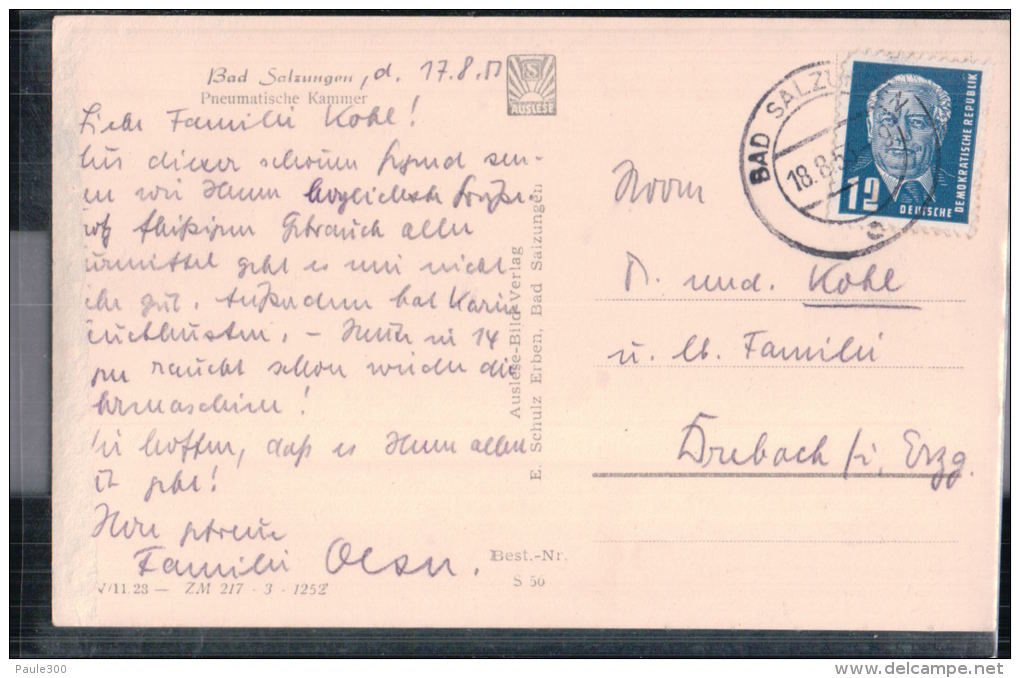 Bad Salzungen, d. 17.8.51
Pneumatische Kammer
AUSLESE
Liebe Familie Kohl!
Aus dieser schönen Gegend sen-
en wir Ihnen herzlichste Grüße.
rotz fleißigem Gebrauch aller
urmittel geht es mir nicht
ehr gut. Außerdem hat Karin
euchhusten. – Heute in 14
gen raucht schon wieder die
hrmaschine!
Wir hoffen, daß es Ihnen allen
ut geht!
Ihre getreue
Familie
V/11.28 — ZM 217 - 3 - 1252
Auslese-Bild-Verlag
E. Schulz Erben, Bad Salzungen
Best.-Nr.
S 56
BAD SALZU
18.8.5
12
DEUTSCHE
DEMOKRATISCHE REPUBLIK
Herrn
und. Kohl
u. lb. Familie
Drebach / i. Erzg.
Paule300
delcampe.net